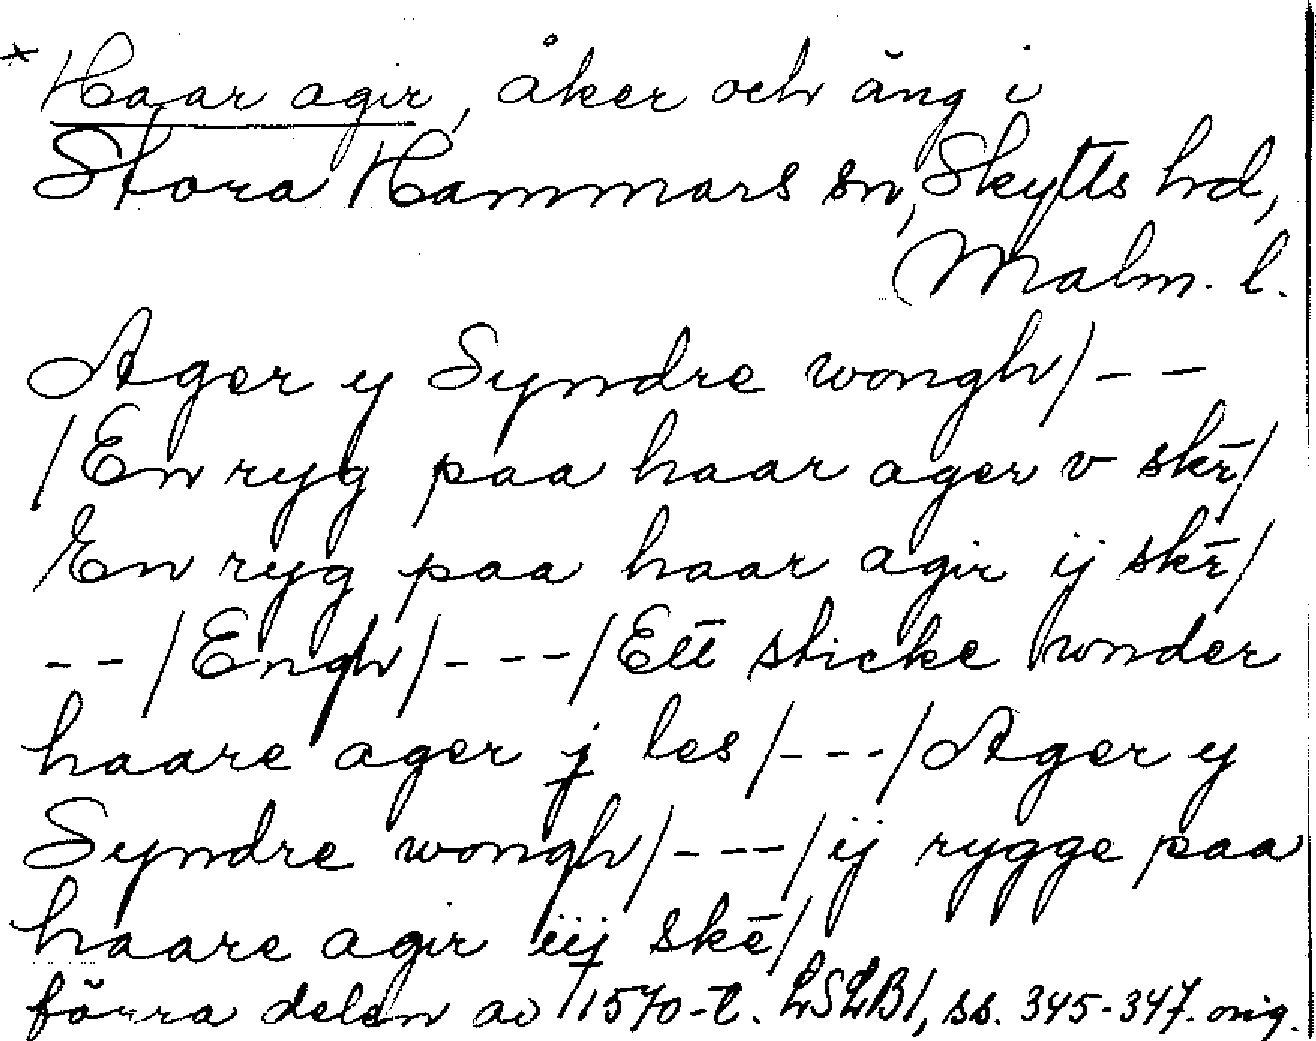 * Haar agir, åker och äng i
Stora Hammars sn, Skytts hd,
Malm. l.
Ager y Syndre wongh/ - -
/En ryg paa haar ager v skē/
En ryg paa haar agir ij skē/
- - /Engh/ - - - /Ett sticke wnder
haare ager j les /- - -/ Ager y
Syndre wongh/ - - - /ij rygge paa
haare agir iij skē/
förra delen av 1570-t. LSLB1, ss. 345-347. orig.